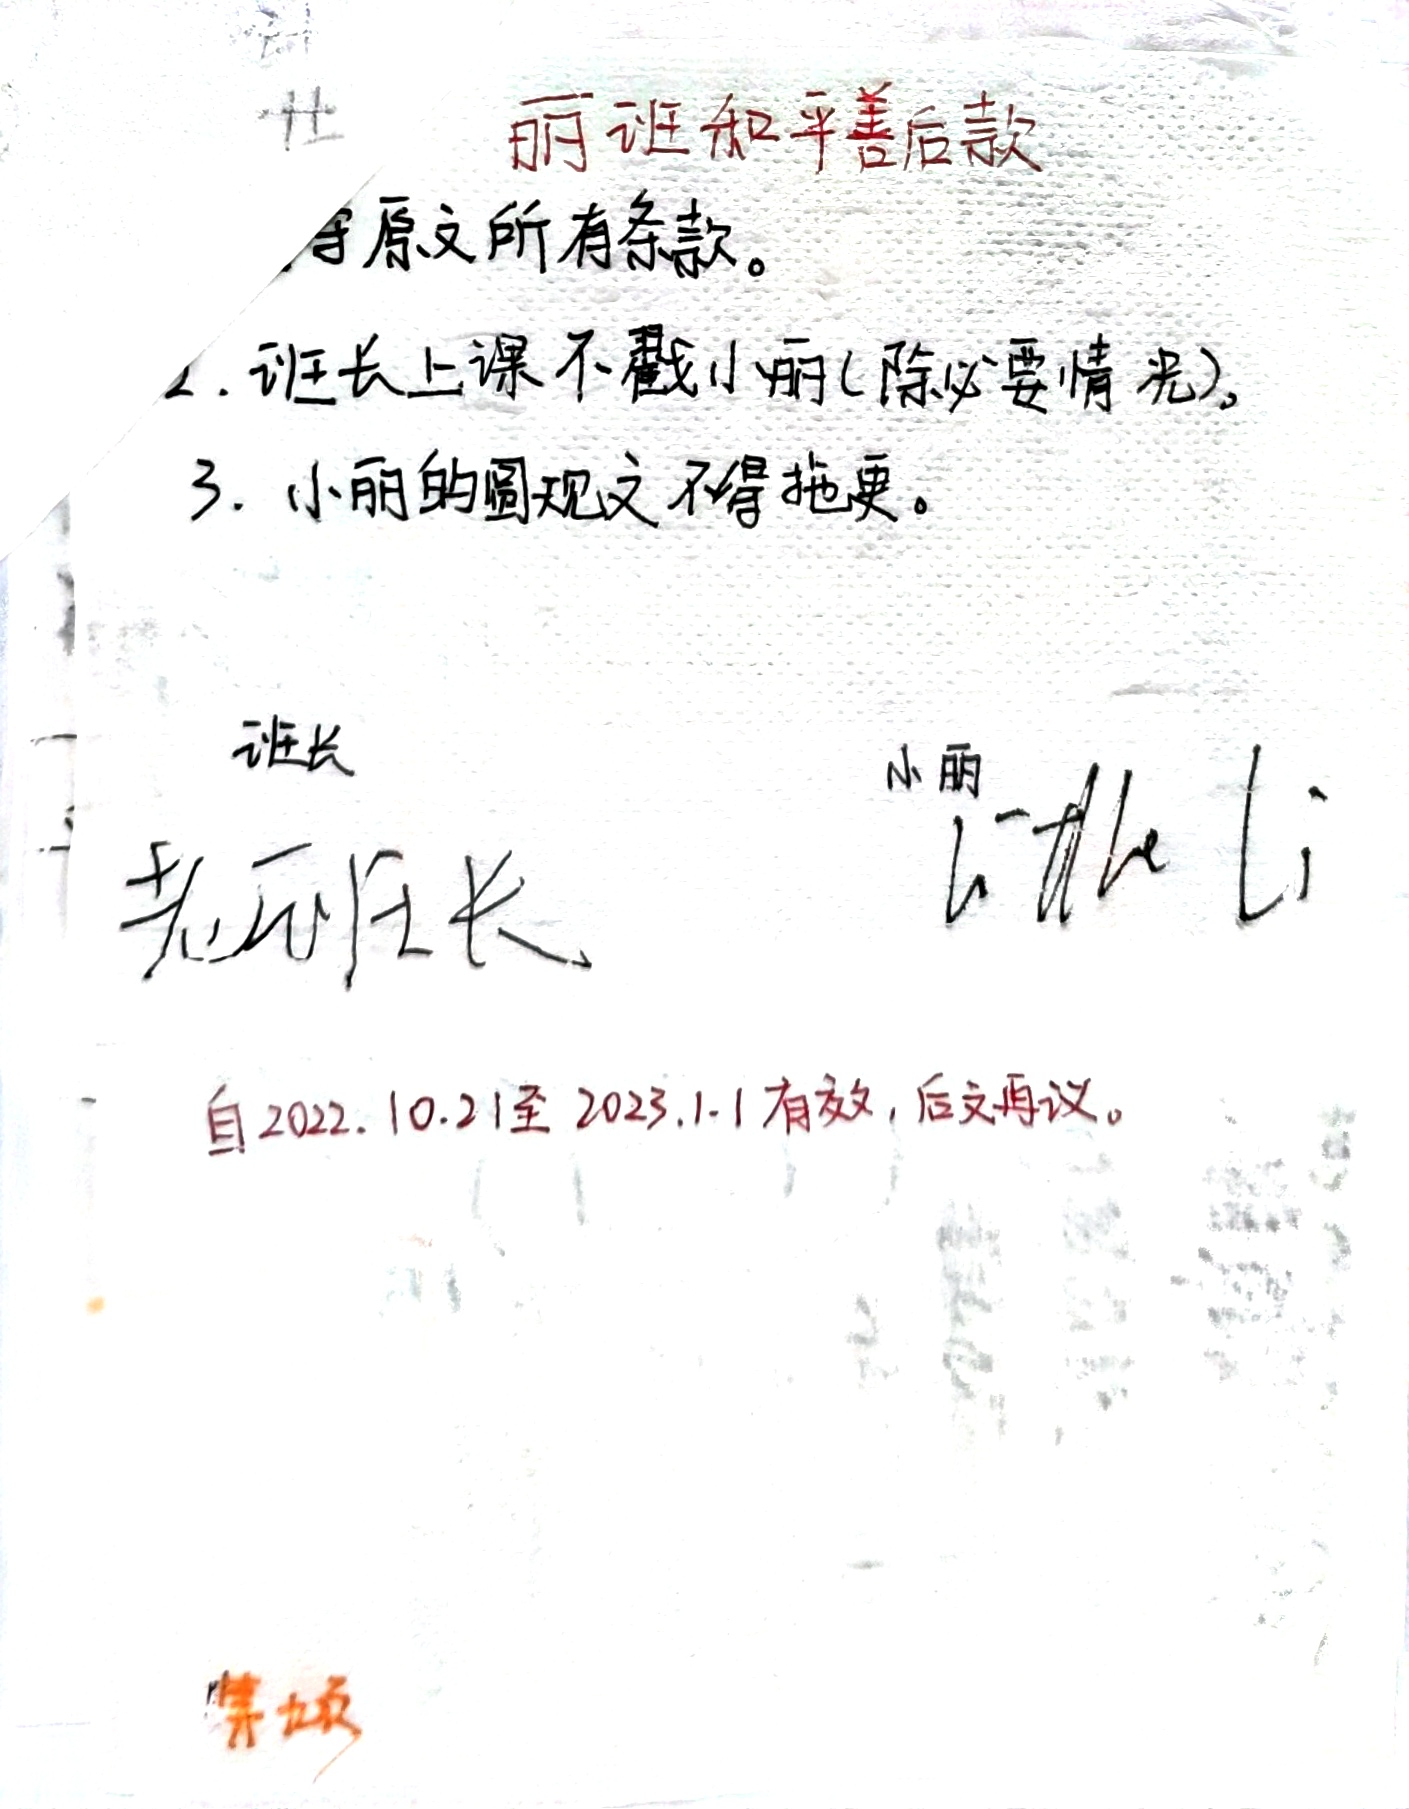 丽班和平善后款
原文所有条款。
2. 班长上课不戳小丽(除必要情况)。
3. 小丽的圆观文不得拖更。
班长
小丽
老班长
Little Li
自2022.10.21至2023.1.1有效,后文再议。